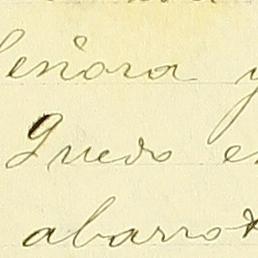 Señora y
Quedo en
abarro